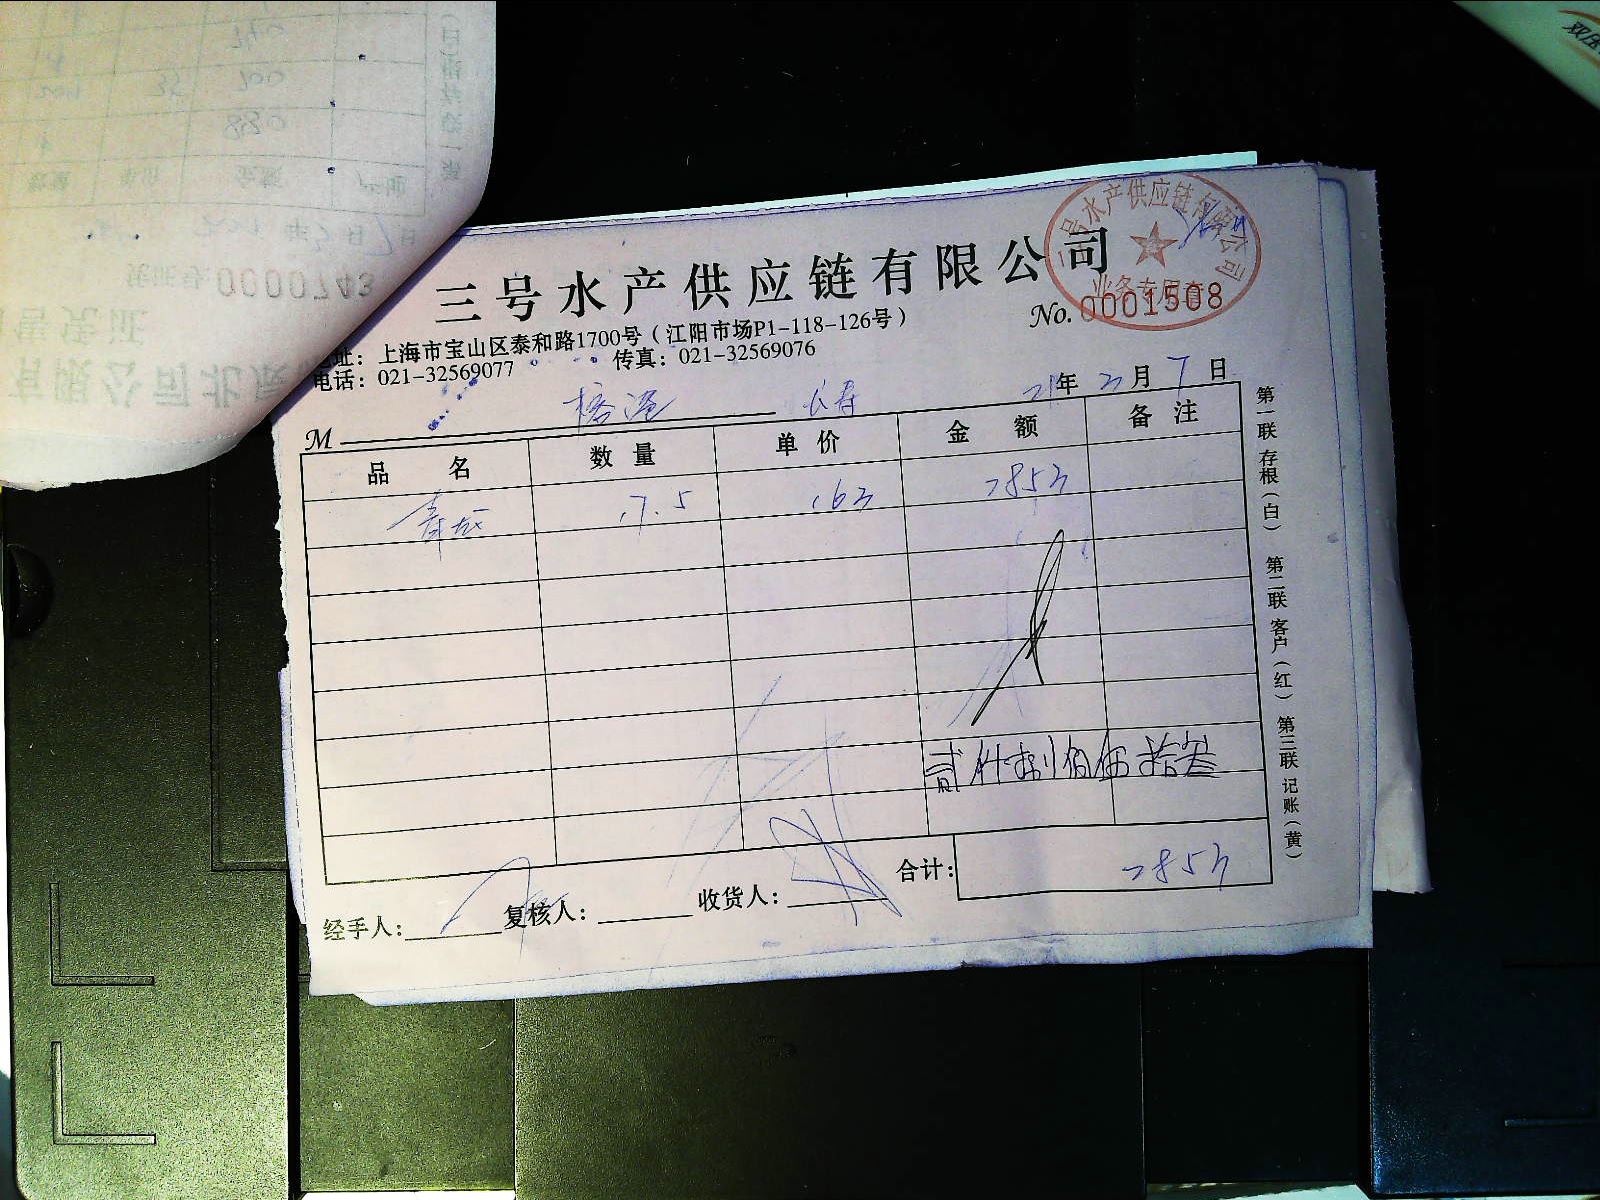 三号水产供应链有限公司
号水产供应链有限公司
业务专用章
No. 0001508
地址：上海市宝山区泰和路1700号（江阳市场P1-118-126号）
电话：021-32569077 传真：021-32569076
21年3月7日
M 榕港
品名 数量 单价 金额 备注
17.5 163 2853
贰仟捌佰伍拾叁
合计： 2853
经手人： 复核人： 收货人：
第一联 存根（白） 第二联 客户（红） 第三联 记账（黄）
0000743